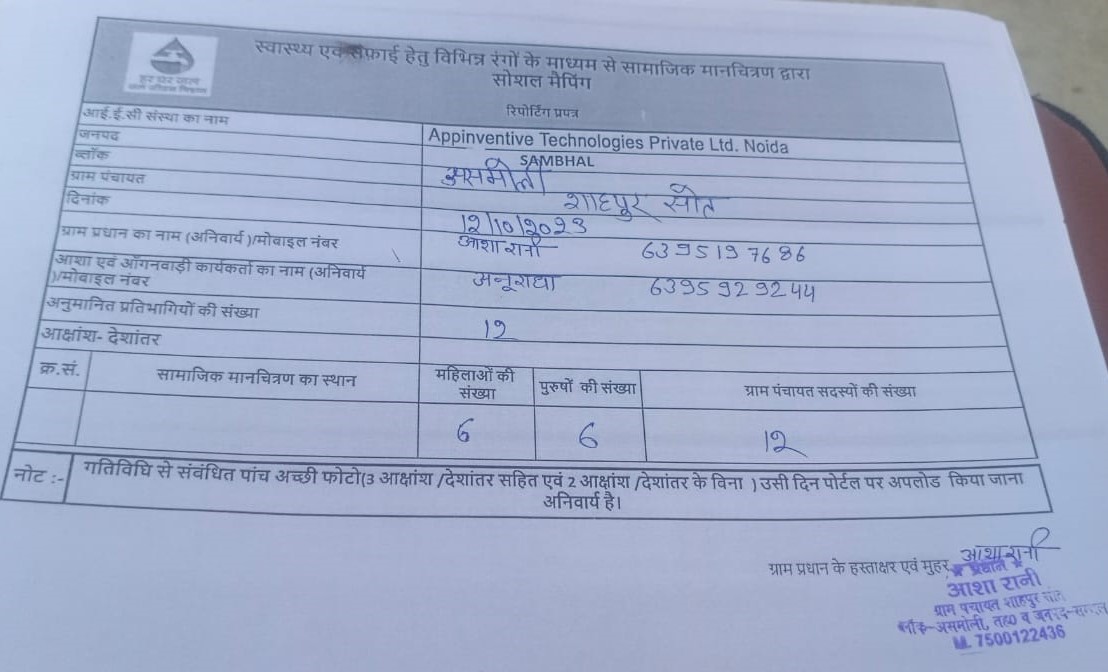 हर घर जल
जल जीवन मिशन
स्वास्थ्य एवं सफ़ाई हेतु विभिन्न रंगों के माध्यम से सामाजिक मानचित्रण द्वारा
सोशल मैपिंग
रिपोर्टिंग प्रपत्र
आई.ई.सी संस्था का नाम Appinventive Technologies Private Ltd. Noida
जनपद SAMBHAL
ब्लॉक असमोली
ग्राम पंचायत शाहपुर सोत
दिनांक 12/10/2023
ग्राम प्रधान का नाम (अनिवार्य )/मोबाइल नंबर आशा रानी 6395197686
आशा एवं आँगनवाड़ी कार्यकर्ता का नाम (अनिवार्य
)/मोबाइल नंबर अनूराधा 6395929244
अनुमानित प्रतिभागियों की संख्या 12
आक्षांश- देशांतर
क्र.सं. सामाजिक मानचित्रण का स्थान महिलाओं की संख्या पुरुषों की संख्या ग्राम पंचायत सदस्यों की संख्या
6 6 12
नोट :- गतिविधि से संबंधित पांच अच्छी फोटो(3 आक्षांश /देशांतर सहित एवं 2 आक्षांश /देशांतर के विना ) उसी दिन पोर्टल पर अपलोड किया जाना
अनिवार्य है।
ग्राम प्रधान के हस्ताक्षर एवं मुहर आशा रानी
★ प्रधान ★
आशा रानी
ग्राम पंचायत शाहपुर सोत
ब्लॉक-असमोली, तह0 व जनपद-सम्भल
M. 7500122436